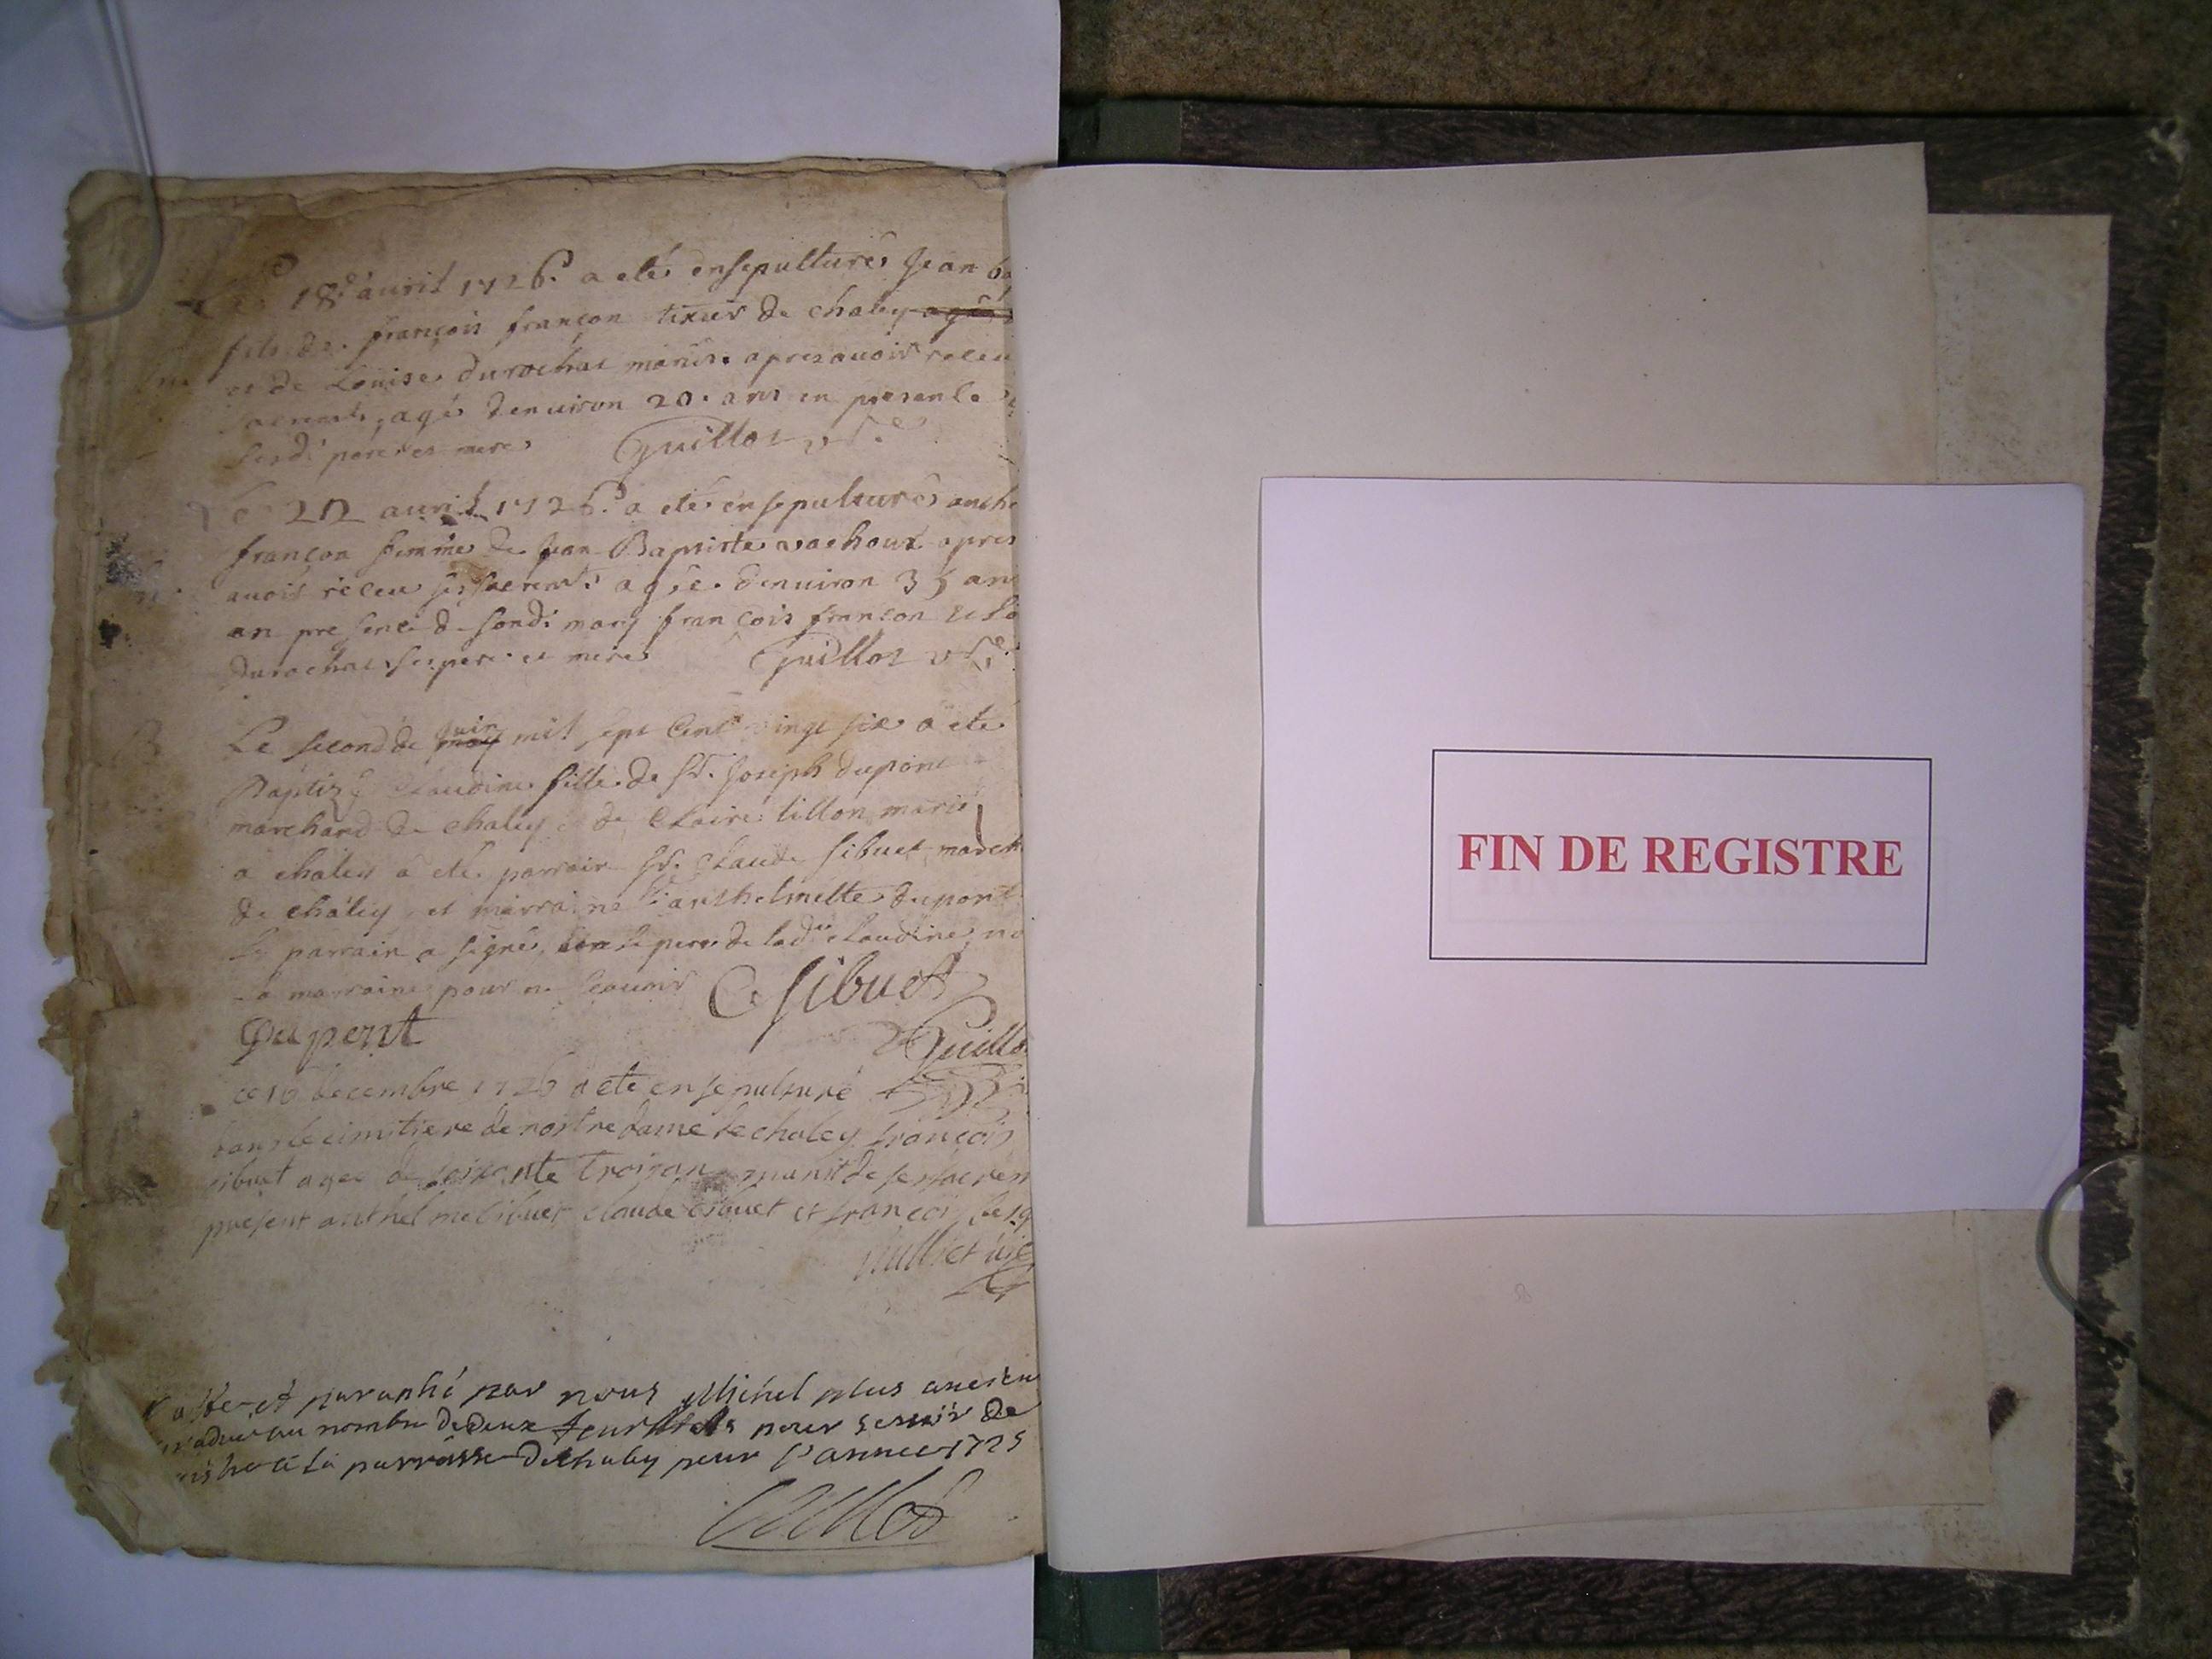 18e auril 1726. a eté ensepulturé Jean
fils de françois françon tixier de chaley agé
et de Louise durochat mariés apres auoir receu
agé denuiron 20. ans en presence
sesdi. pere et mere Guillot
22 auril 1726. a eté ensepulturé anthe
françon femme de Jean Baptiste vachoux apres
auoir receu ses sacremts agée denuiron 35 ans
en presence de sondi mary françois françon et Lo
durochat ses pere et mere Guillot
Le second de may juin mil sept Cent vingt six a eté
Baptizé Claudine fille de Sr. Joseph dupont
marchand de chaley et de Claire tillon mariés
a chaley a eté parrain Sr. Claude Sibuet march
de chaley, et marraine anthelmette dupont
le parrain a signé, le pere de ladte Claudine, no
la marraine pour ne scauoir C Sibuet
Dupont
Guillo
ce 16 decembre 1726 a ete ensepulture
dans le cimitiere de nostre dame de chaley françois
sibuet agee de soixante troizan munit de ses sacrem
present anthelme Cibuet claude Cibuet et françois
et paraphé par nous Michel plus ancien
au nombre de deux feuillets pour seruir de
a la parroisse de chaley pour l'annee 1725
FIN DE REGISTRE